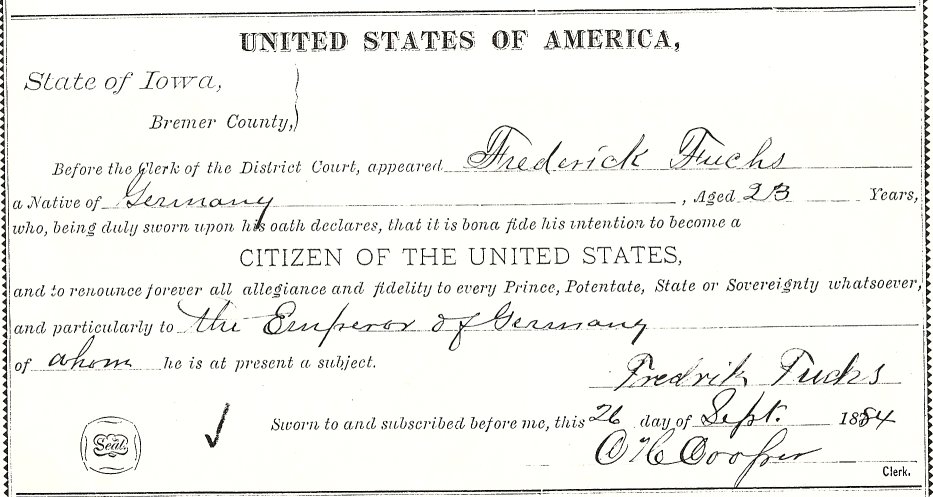 UNITED STATES OF AMERICA,
State of Iowa,
Bremer County,
Before the Clerk of the District Court, appeared Frederick Fuchs
a Native of Germany, Aged 23 Years,
who, being duly sworn upon his oath declares, that it is bona fide his intention to become a
CITIZEN OF THE UNITED STATES,
and to renounce forever all allegiance and fidelity to every Prince, Potentate, State or Sovereignty whatsoever,
and particularly to the Emperor of Germany
of whom he is at present a subject.
Fredrik Fuchs
Sworn to and subscribed before me, this 26 day of Sept. 1884
Seal.
O H Cooper
Clerk.